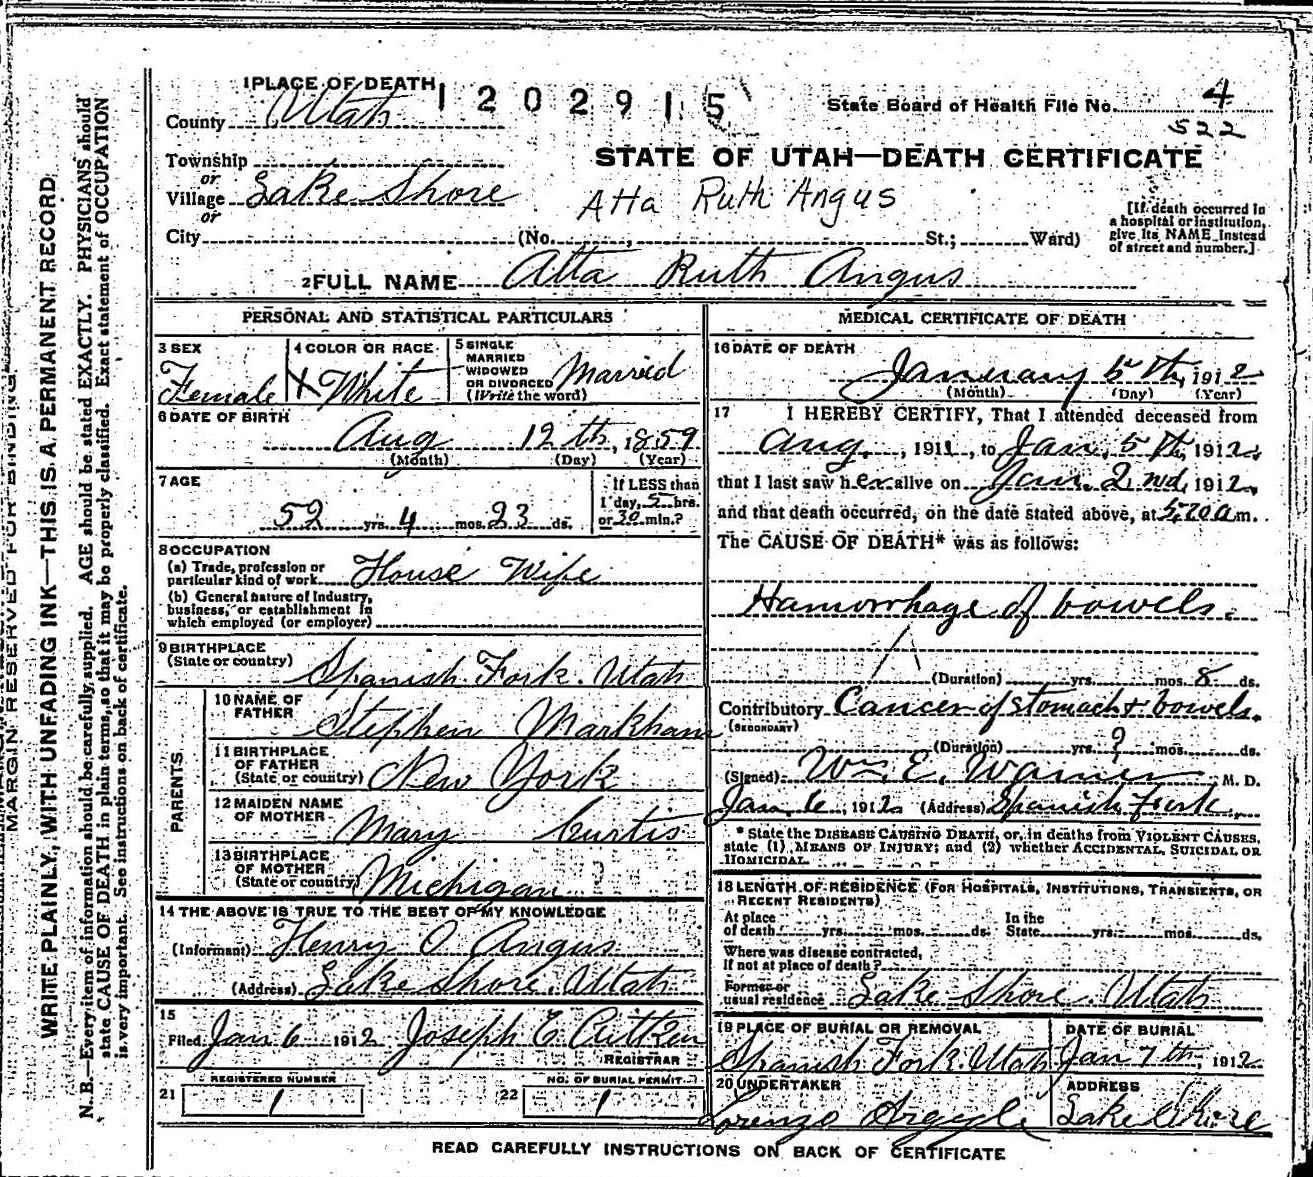 MARGIN RESERVED FOR BINDING
WRITE PLAINLY, WITH UNFADING INK—THIS IS A PERMANENT RECORD
N. B.—Every item of information should be carefully supplied. AGE should be stated EXACTLY. PHYSICIANS should
state CAUSE OF DEATH in plain terms, so that it may be properly classified. Exact statement of OCCUPATION
is very important. See instructions on back of certificate.
1 PLACE OF DEATH
1202915
State Board of Health File No. 4
522
County Utah
STATE OF UTAH—DEATH CERTIFICATE
Township
or
Village Lake Shore
Atta Ruth Angus
or
City (No. , St.; Ward)
[If death occurred in
a hospital or institution,
give its NAME instead
of street and number.]
2 FULL NAME Atta Ruth Angus
PERSONAL AND STATISTICAL PARTICULARS
3 SEX
Female
4 COLOR OR RACE
X White
5 SINGLE
MARRIED
WIDOWED
OR DIVORCED
(Write the word)
Married
6 DATE OF BIRTH
Aug 12th, 1859
(Month) (Day) (Year)
7 AGE
52 yrs. 4 mos. 23 ds.
If LESS than
1 day, 5 hrs.
or 30 min.?
8 OCCUPATION
(a) Trade, profession or
particular kind of work House Wife
(b) General nature of Industry,
business, or establishment in
which employed (or employer)
9 BIRTHPLACE
(State or country) Spanish Fork. Utah
PARENTS
10 NAME OF
FATHER Stephen Markham
11 BIRTHPLACE
OF FATHER
(State or country) New York
12 MAIDEN NAME
OF MOTHER Mary Curtis
13 BIRTHPLACE
OF MOTHER
(State or country) Michigan ?
14 THE ABOVE IS TRUE TO THE BEST OF MY KNOWLEDGE
(Informant) Henry O Angus
(Address) Lake Shore. Utah
15
Filed Jan 6 1912 Joseph E
REGISTRAR
21 REGISTERED NUMBER
1
22 NO. OF BURIAL PERMIT
1
MEDICAL CERTIFICATE OF DEATH
16 DATE OF DEATH
January 5th, 1912
(Month) (Day) (Year)
17 I HEREBY CERTIFY, That I attended deceased from
Aug. , 1911, to Jan. 5th, 1912,
that I last saw her alive on Jan. 2nd, 1912,
and that death occurred, on the date stated above, at 5.20 a m.
The CAUSE OF DEATH* was as follows:
Hamorrhage of bowels.
(Duration) yrs. mos. 8 ds.
Contributory Cancer of stomach & bowels.
(SECONDARY)
(Duration) yrs. ? mos. ds.
(Signed) Wm. E. Warner M. D.
Jan 6, 1912 (Address) Spanish Fork.
* State the DISEASE CAUSING DEATH, or, in deaths from VIOLENT CAUSES,
state (1) MEANS OF INJURY; and (2) whether ACCIDENTAL, SUICIDAL OR
HOMICIDAL.
18 LENGTH OF RESIDENCE (FOR HOSPITALS, INSTITUTIONS, TRANSIENTS, OR
RECENT RESIDENTS)
At place
of death yrs. mos. ds.
In the
State yrs. mos. ds.
Where was disease contracted,
If not at place of death?
Former or
usual residence Lake Shore. Utah
19 PLACE OF BURIAL OR REMOVAL
Spanish Fork. Utah
DATE OF BURIAL
Jan 7th, 1912
20 UNDERTAKER
Lorenzo Argyle
ADDRESS
Lake Shore
READ CAREFULLY INSTRUCTIONS ON BACK OF CERTIFICATE